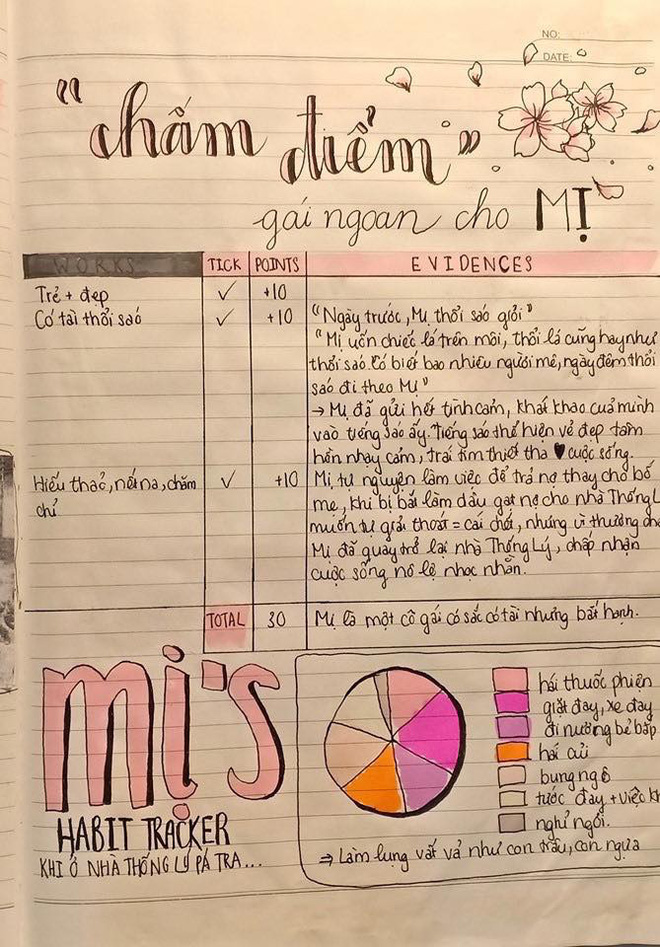 NO:
DATE:
"chấm điểm"
gái ngoan cho MỊ
WORKS TICK POINTS EVIDENCES
Trẻ + đẹp ✓ +10
Có tài thổi sáo ✓ +10 "Ngày trước, Mị thổi sáo giỏi"
"Mị uốn chiếc lá trên môi, thổi lá cũng hay như
thổi sáo. Có biết bao nhiêu người mê, ngày đêm thổi
sáo đi theo Mị"
→ Mị đã gửi hết tình cảm, khát khao của mình
vào tiếng sáo ấy. Tiếng sáo thể hiện vẻ đẹp tâm
hồn nhạy cảm, trái tim thiết tha ♥ cuộc sống.
Hiếu thảo, nết na, chăm ✓ +10 Mị tự nguyện làm việc để trả nợ thay cho bố
chỉ mẹ, khi bị bắt làm dâu gạt nợ cho nhà Thống L
muốn tự giải thoát = cái chết, nhưng vì thương
Mị đã quay trở lại nhà Thống Lý, chấp nhận
cuộc sống nô lệ nhọc nhằn.
TOTAL 30 Mị là một cô gái có sắc có tài nhưng bất hạnh.
MỊ'S
HABIT TRACKER
KHI Ở NHÀ THỐNG LÝ PÁ TRA...
hái thuốc phiện
giặt đay, xe đay
đi nương bẻ bắp
hái củi
bung ngô
tước đay + việc
nghỉ ngơi.
⇒ Làm lụng vất vả như con trâu, con ngựa